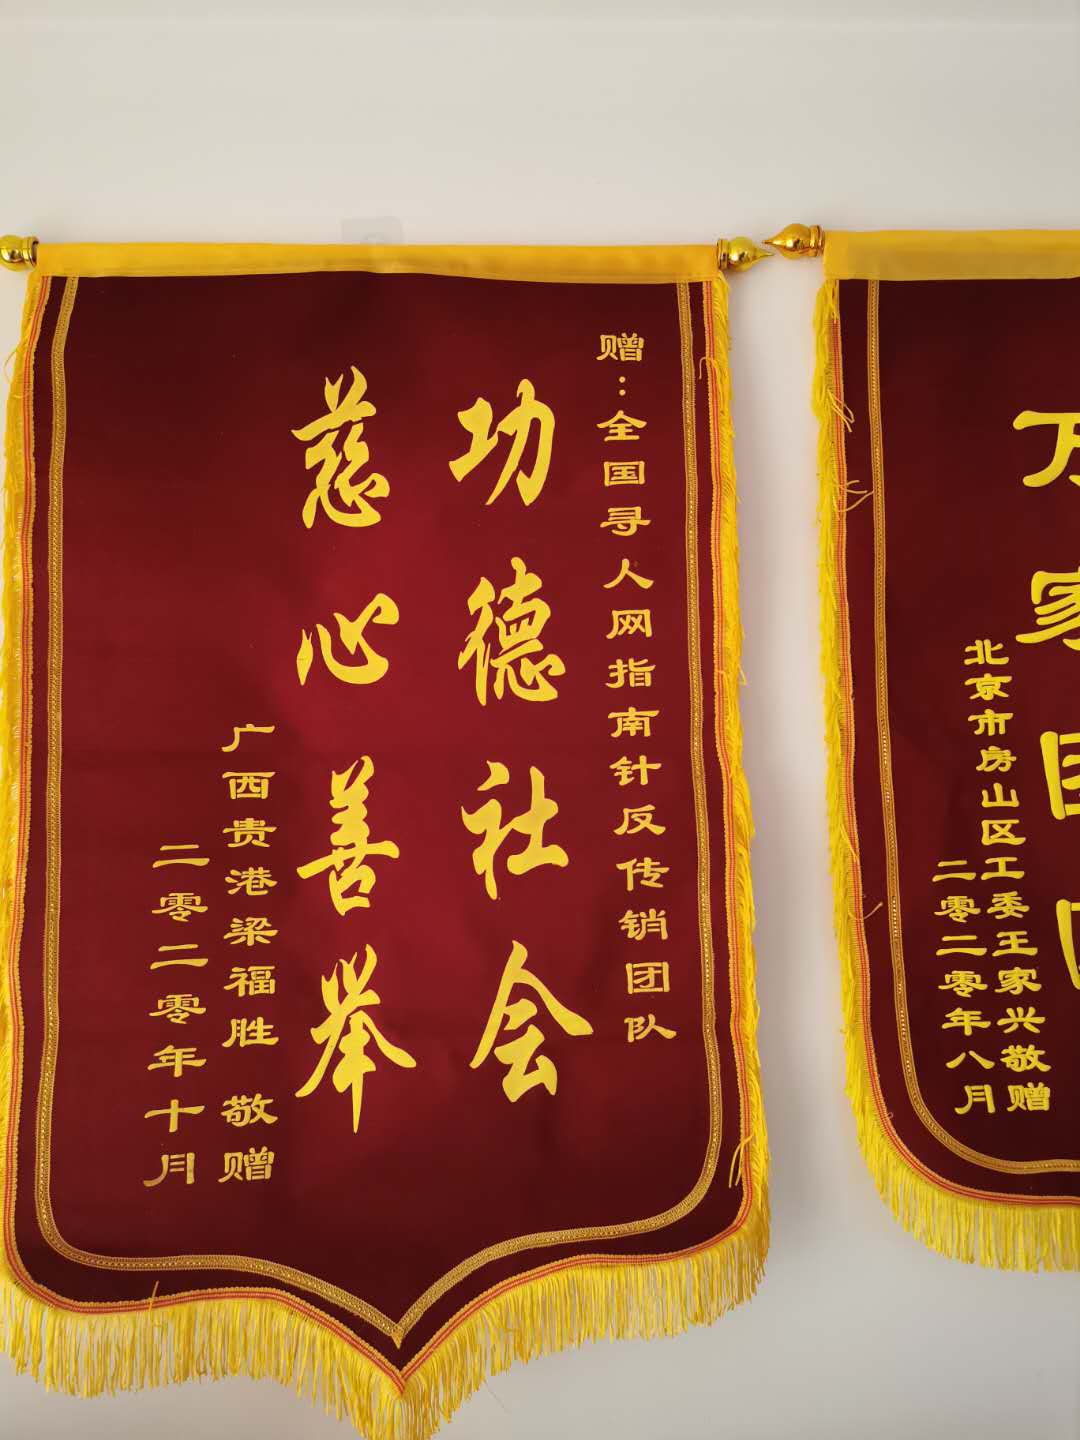 赠：全国寻人网指南针反传销团队
功德社会
慈心善举
广西贵港梁福胜 敬赠
二零二零年十月
万家团
北京市房山区工委王家兴敬赠
二零二零年八月